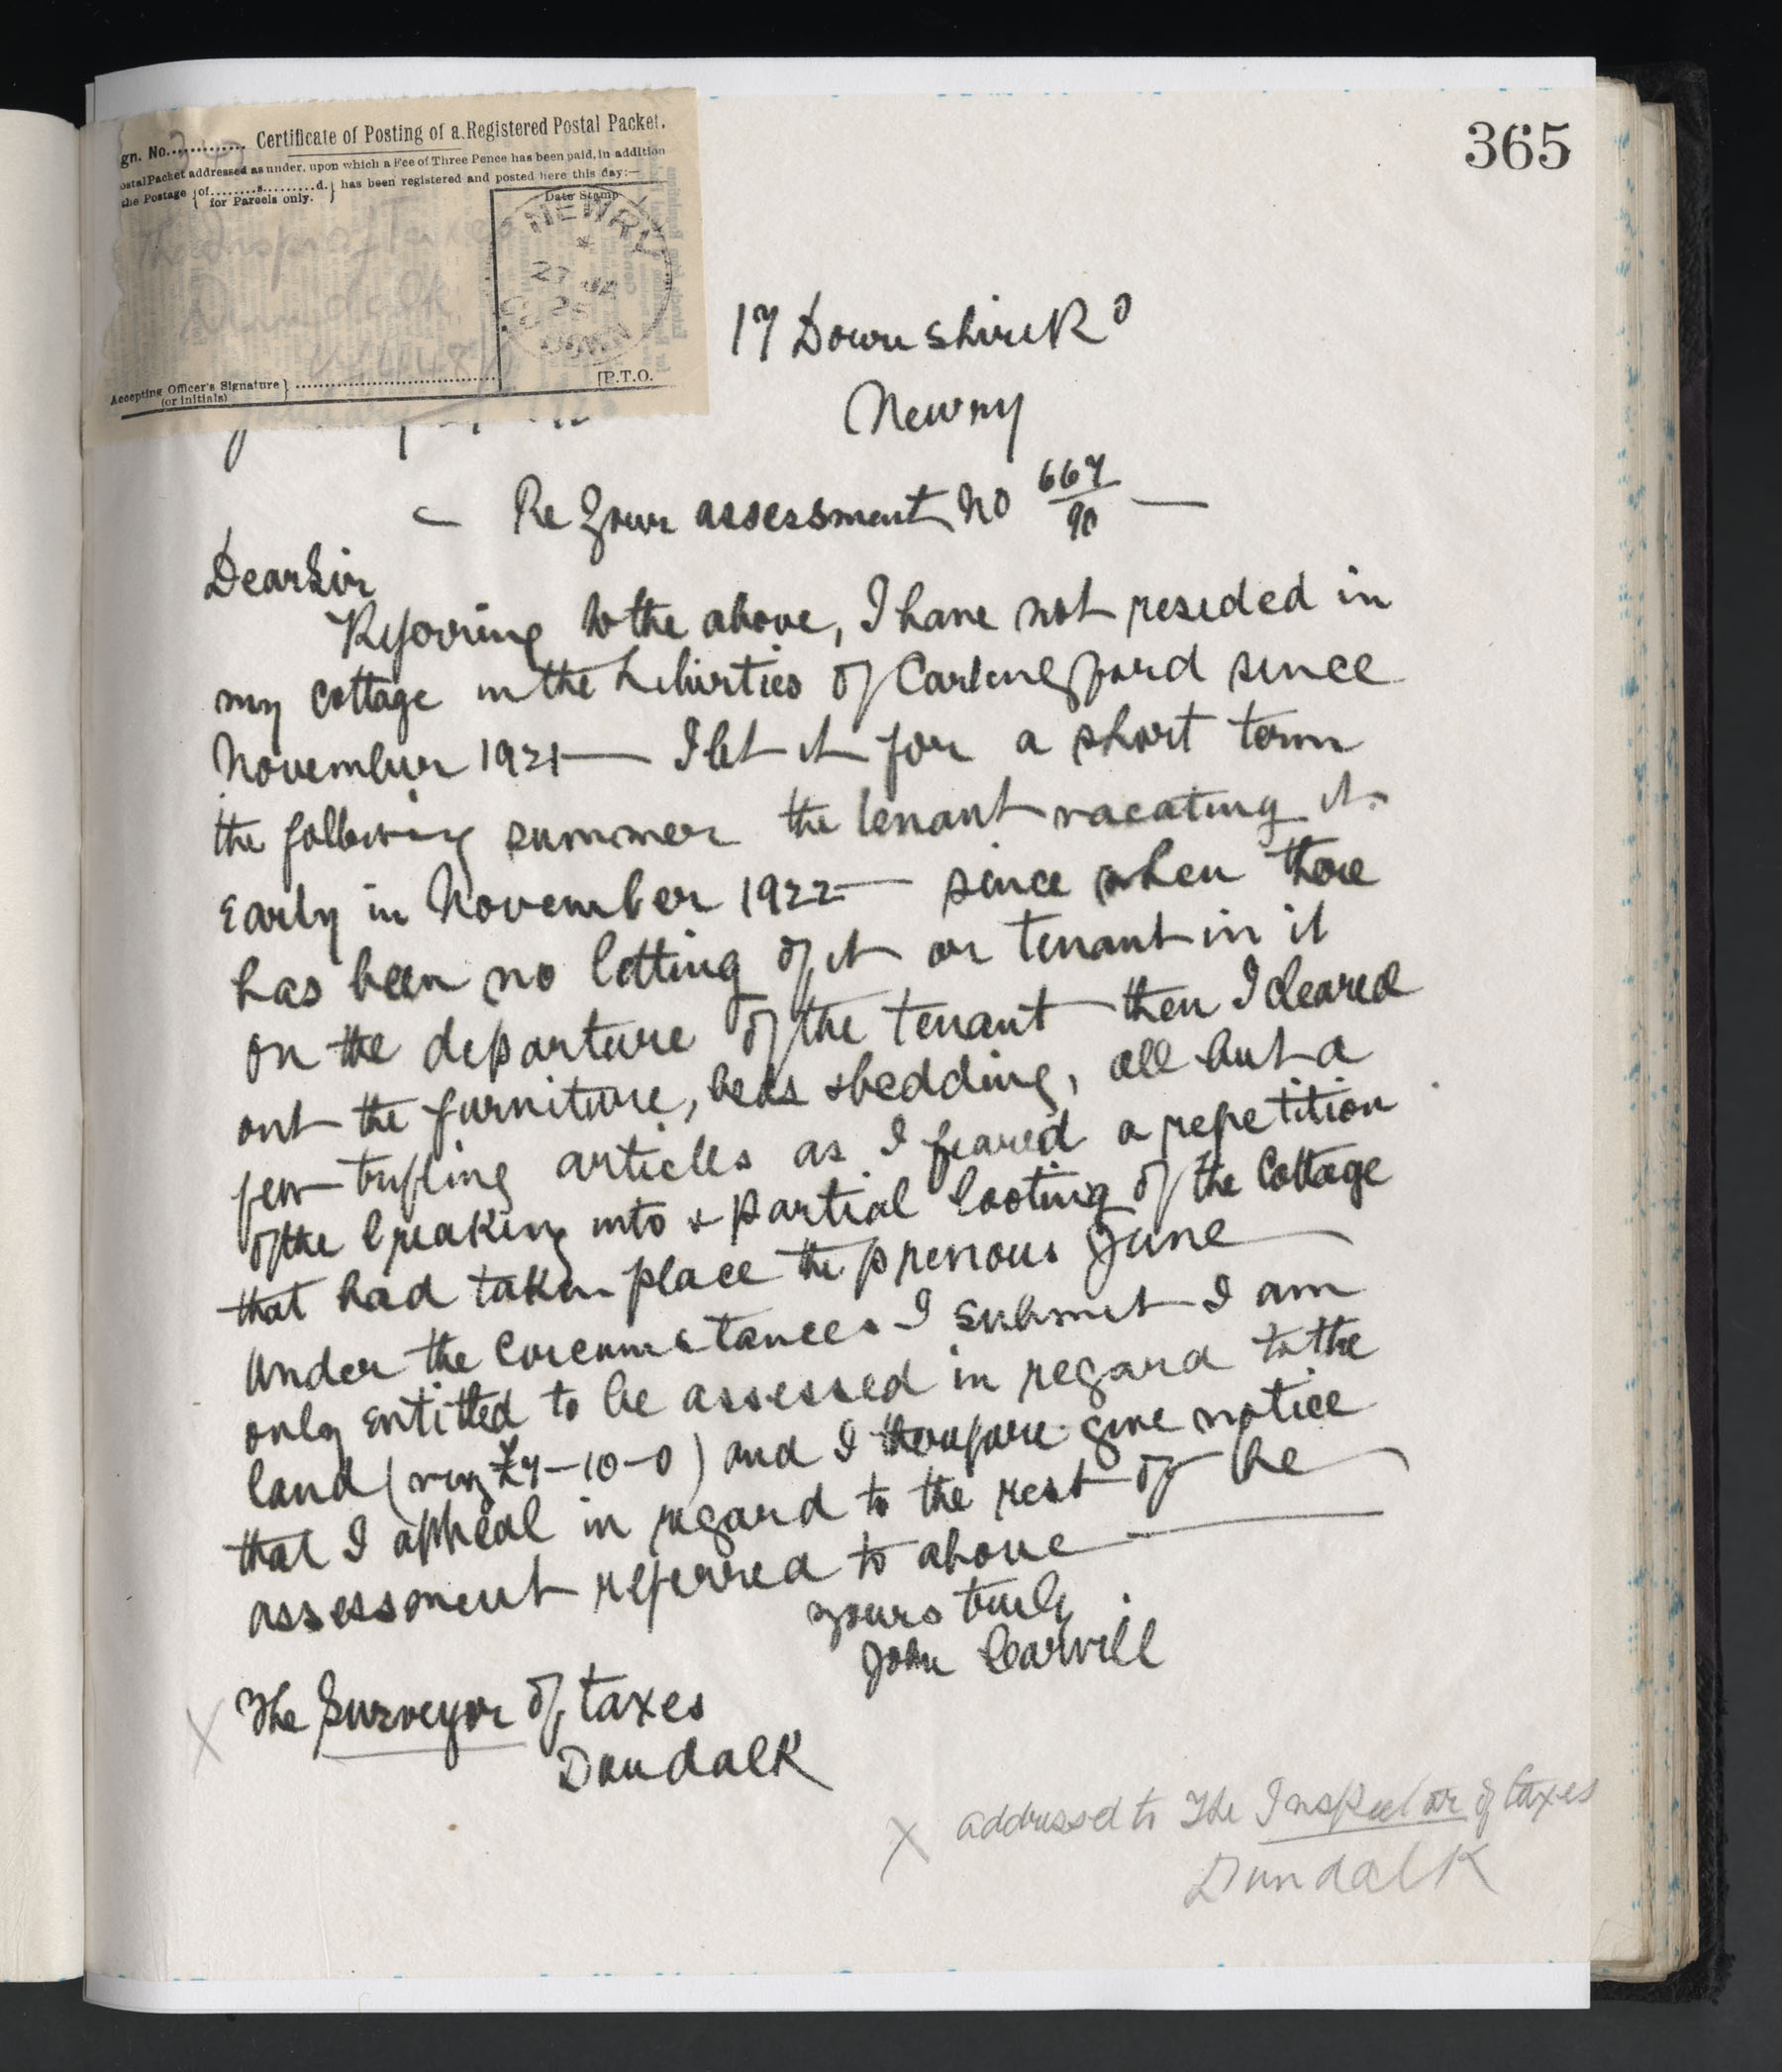 365
gn. No............. Certificate of Posting of a Registered Postal Packet.
ostal Packet addressed as under, upon which a Fee of Three Pence has been paid, in addition
the Postage { of........s.........d. } has been registered and posted here this day:—
for Parcels only.
Date Stamp
NEWRY
27 JA
25
The Inspr of Taxes
Dundalk
Accepting Officer's Signature } ........................................
(or initials)
[P.T.O.
17 Downshire Rd
Newry
Re Your assessment No 667/90 —
Dear Sir
Referring to the above, I have not resided in
my cottage in the Liberties of Carlingford since
November 1921 — I let it for a short term
the following summer the tenant vacating it
Early in November 1922 — since when there
has been no letting of it or tenant in it
on the departure of the tenant then I cleared
out the furniture, beds & bedding, all but a
few trifling articles as I feared a repetition
of the breaking into & partial looting of the Cottage
that had taken place the previous June —
Under the Circumstances I submit I am
only Entitled to be assessed in regard to the
land (viz £7-10-0) and I therefore give notice
that I appeal in regard to the rest of he
assessment referred to above —
yours truly
John Carvill
X The Surveyor of taxes
Dundalk
X addressed to The Inspector of taxes
Dundalk